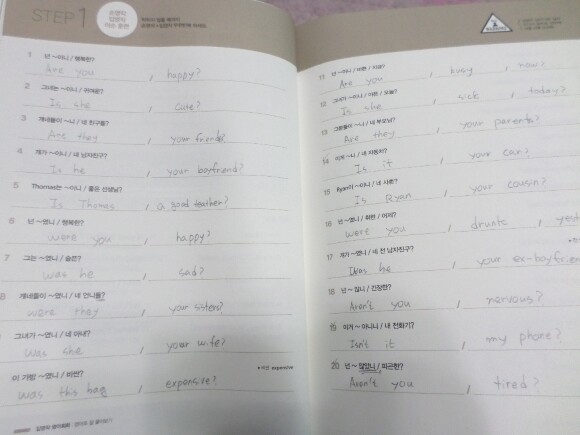 STEP 1
순영작
입영작
이순 훈련
1 넌 ~이니 / 행복한?
Are you , happy?
2 그녀는 ~이니 / 귀여운?
Is she , cute?
3 걔네들이 ~이니 / 네 친구들?
Are they , your friends?
4 걔가 ~이니 / 네 남자친구?
Is he , your boyfriend?
5 Thomas는 ~이니 / 좋은 선생님?
Is Thomas , a good teacher?
6 넌 ~였니 / 행복한?
were you , happy?
7 그는 ~였니 / 슬픈?
was he , sad?
8 걔네들이 ~였니 / 네 언니들?
were they , your sisters?
그녀가 ~였니 / 네 아내?
was she , your wife?
이 가방 ~였니 / 비싼?
expensive
was this bag , expensive?
11 넌 ~이니 / 바쁜 / 지금?
Are you , busy , now?
12 그녀가 ~이니 / 아픈 / 오늘?
Is she , sick , today?
13 그분들이 ~이니 / 네 부모님?
Are they , your parents?
14 이게 ~니 / 네 자동차?
Is it , your car?
15 Ryan이 ~이니 / 네 사촌?
Is Ryan , your cousin?
16 넌 ~였니 / 취한 / 어제?
were you , drunk ,
17 걔가 ~였니 / 네 전 남자친구?
was he , your ex-boyfrien
18 넌 ~ 않니 / 긴장한?
Aren't you , nervous?
19 이거 ~ 아니니 / 내 전화기?
Isn't it , my phone?
20 넌 ~ 않았니 / 피곤한?
Aren't you , tired?